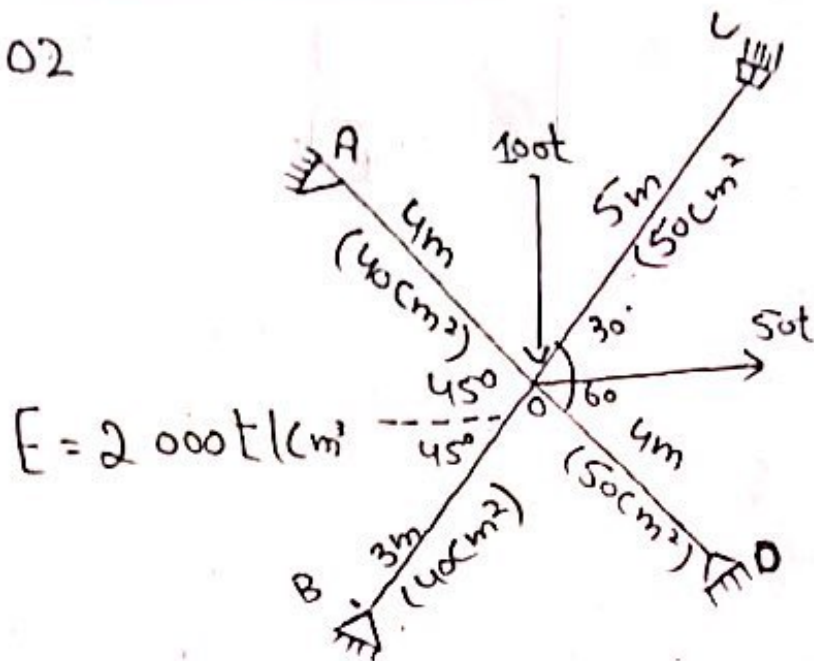 02
C
A
100t
4m
(40Cm²)
5m
(50Cm²
30°
50t
45°
O
60
E = 2 000t/Cm²
45°
4m
(50Cm²)
3m
(40Cm²)
B
D